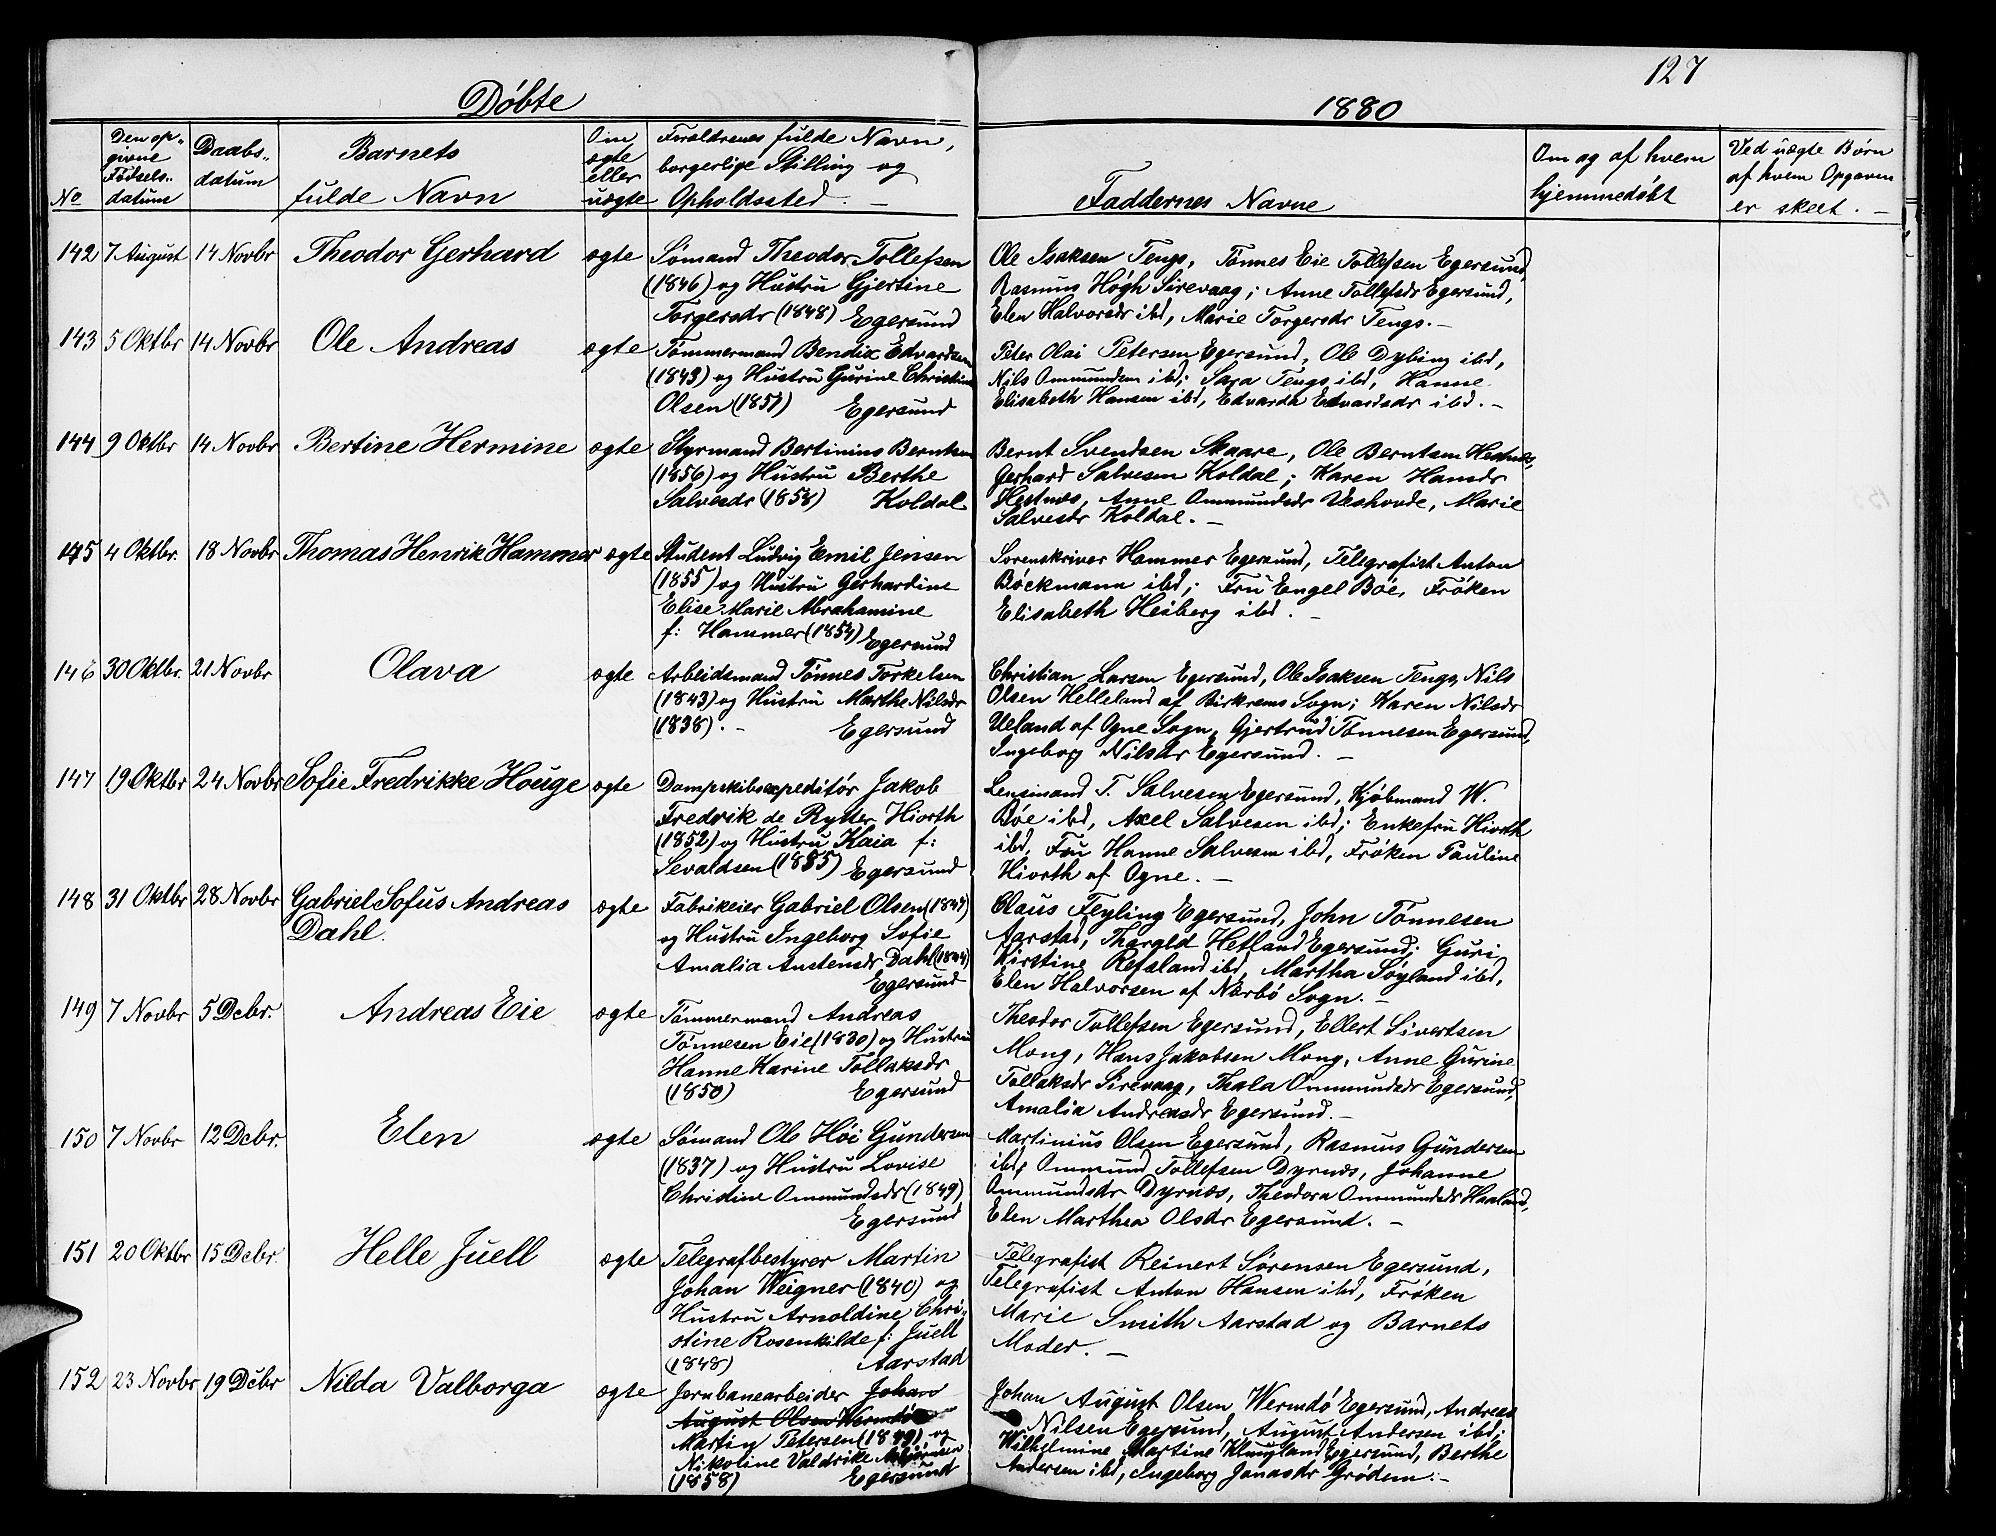 127
Døbte
1880
No
Den op-
givne
Fødsels-
datum
Daabs-
datum
Barnets
fulde Navn
Om
ægte
eller
uægte
Forældrenes fulde Navn,
borgerlige Stilling og
Opholdssted. —
Faddernes Navne
Om og af hvem
hjemmedøbt
Ved uægte Børn
af hvem Opgaven
er skeet. —
142 7 August 14 Novbr Theodor Gerhard ægte
Sømand Theodor Tollefsen
(1846) og Hustru Gjertine
Torgersdr (1848) Egersund
Ole Isaksen Tengs, Tønnes Eie Tollefsen Egersund,
Rasmus Høgh Sirevaag; Anne Tollefsdr Egersund,
Elen Halvorsdr ibd, Marie Torgersdr Tengs. —
143 5 Oktbr 14 Novbr Ole Andreas ægte
Tømmermand Bendix Edvardsen
(1843) og Hustru Gurine Christine
Olsen (1851) Egersund
Peter Olai Petersen Egersund, Ole Dybing ibd,
Nils Ommundsen ibd; Sara Tengs ibd, Hanne
Elisabeth Hansen ibd, Edvarda Edvardsdr ibd. —
144 9 Oktbr 14 Novbr Bertine Hermine ægte
Styrmand Bertinius Berntsen
(1856) og Hustru Berthe
Salvesdr (1858) Koldal
Bernt Svendsen Skaare, Ole Berntsen Hestnes,
Gerhard Salvesen Koldal; Karen Hansdr
Hestnes, Anne Ommundsdr Veshovde, Marie
Salvesdr Koldal. —
145 4 Oktbr. 18 Novbr Thomas Henrik Hammer ægte
Student Ludvig Emil Jensen
(1855) og Hustru Gerhardine
Elise Marie Abrahamine
f: Hammer (1854) Egersund
Sorenskriver Hammer Egersund, Telegrafist Anton
Bøckmann ibd; Fru Engel Bøe, Frøken
Elisabeth Heiberg ibd. —
146 30 Oktbr. 21 Novbr Olava ægte
Arbeidsmand Tønnes Torkelsen
(1843) og Hustru Marthe Nilsdr
(1838). — Egersund
Christian Larsen Egersund, Ole Isaksen Tengs, Nils
Olsen Helleland af Birkrems Sogn; Karen Nilsdr
Ueland af Ogne Sogn, Gjertrud Tønnesen Egersund,
Ingeborg Nilsdr Egersund. —
147 19 Oktbr 24 Novbr Sofie Fredrikke Houge ægte
Dampskibsexpeditør Jakob
Fredrik de Rytter Hiorth
(1852) og Hustru Kaia f:
Sevaldsen (1855) Egersund
Lensmand T. Salvesen Egersund, Kjøbmand W.
Bøe ibd, Axel Salvesen ibd; Enkefru Hiorth
ibd, Fru Hanne Salvesen ibd, Frøken Pauline
Hiorth af Ogne. —
148 31 Oktbr 28 Novbr Gabriel Sofus Andreas ægte
Dahl.
Fabrikeier Gabriel Olsen (1847)
og Hustru Ingeborg Sofie
Amalia Austensdr Dahl (1844)
Egersund
Claus Feyling Egersund, John Tønnesen
Aarstad, Thorgeld Hetland Egersund; Guri
Kirstine Refsland ibd, Martha Søyland ibd,
Elen Halvorsen af Nærbø Sogn. —
149 7 Novbr 5 Debr. Andreas Eie ægte
Tømmermand Andreas
Tønnesen Eie (1830) og Hustru
Hanne Karine Tollaksdr
(1850) Egersund
Theodor Tollefsen Egersund, Ellert Sivertsen
Mong, Hans Jakobsen Mong, Anne Gurine
Tollaksdr Sirevaag, Thala Ommundsdr Egersund,
Amalia Andreasdr Egersund. —
150 7 Novbr 12 Debr. Elen ægte
Sømand Ole Høi Gundersen
(1837) og Hustru Lovise
Christine Ommundsdr (1849)
Egersund
Martinius Olsen Egersund, Rasmus Gundersen
ibd, Ommund Tollefsen Dyrnæs, Johanne
Ommundsdr Dyrnæs, Theodora Ommundsdr Haaland,
Elen Marthea Olsdr Egersund. —
151 20 Oktbr 15 Debr. Helle Juell ægte
Telegrafbestyrer Martin
Johan Weigner (1840) og
Hustru Arnoldine Chri-
stine Rosenkilde f: Juell
(1848) Aarstad
Telegrafist Reinert Sørensen Egersund,
Telegrafist Anton Hansen ibd, Frøken
Marie Smith Aarstad og Barnets
Moder. —
152 23 Novbr 19 Debr Nilda Valborga ægte
Jernbanearbeider Johan
August Olsen Wermdø
Martin Petersen (1849) og
Nikoline Valdrike
(1858) Egersund
Johan August Olsen Wermdø Egersund, Andreas
Nilsen Egersund, August Andersen ibd;
Wilhelmine Martine Klungland Egersund, Berthe
Andersen ibd, Ingeborg Jonasdr Grødem. —